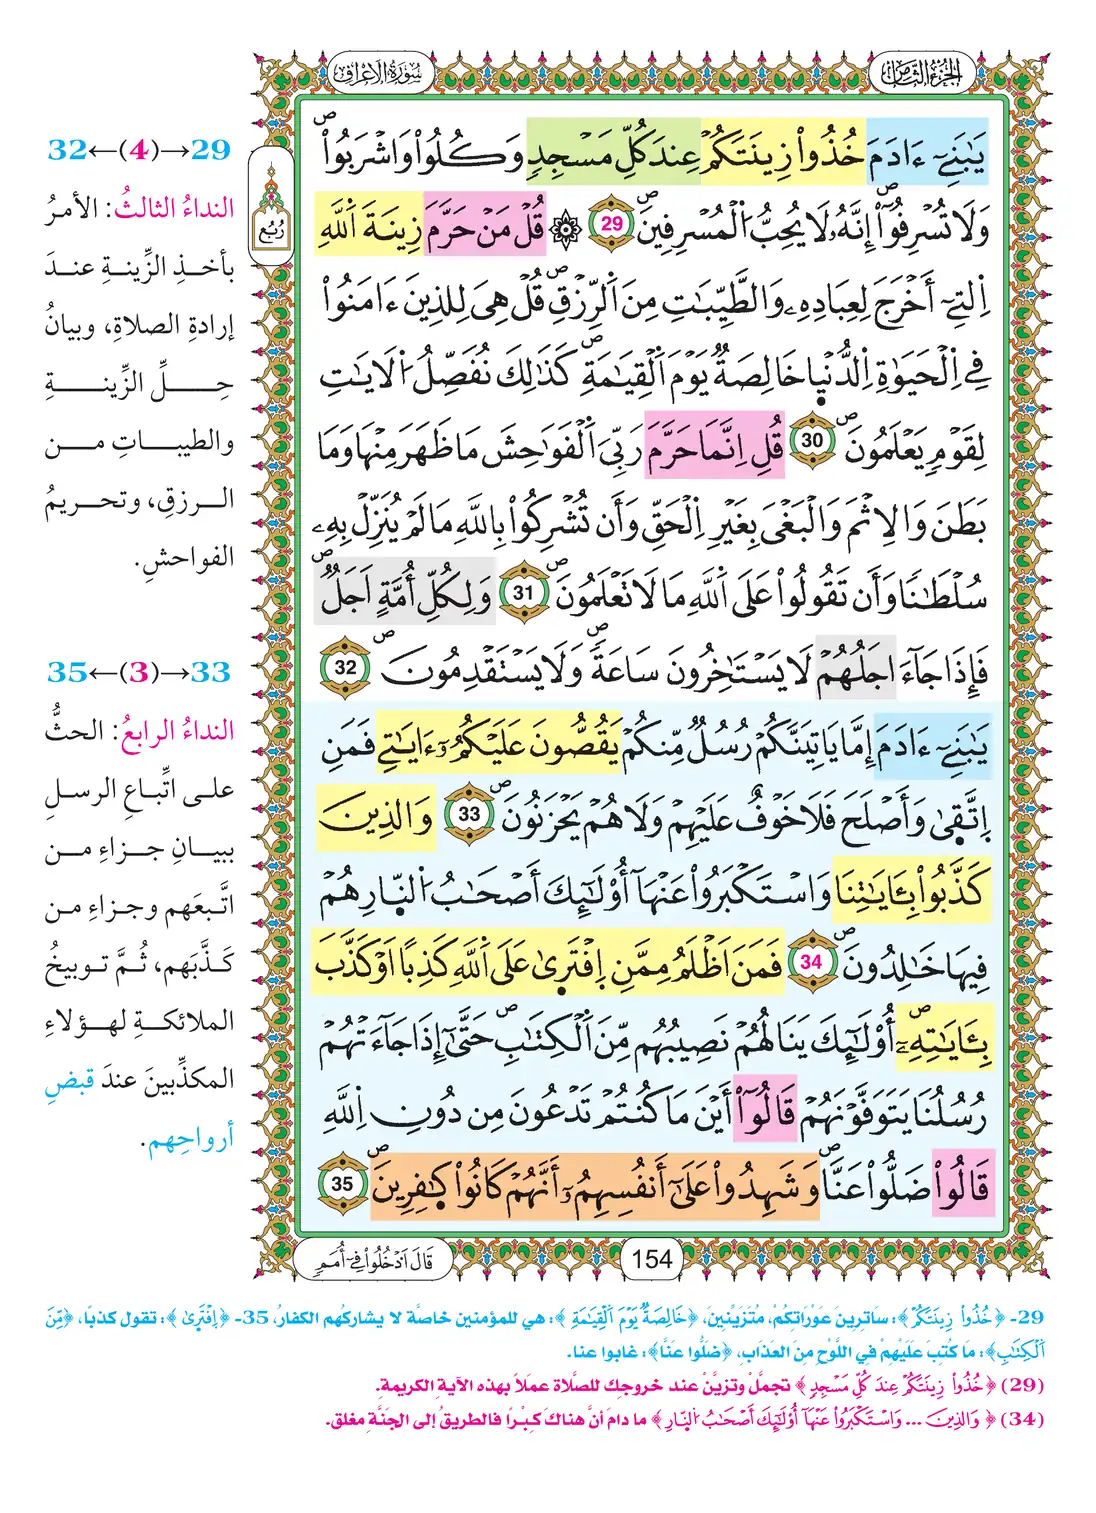 الجزء الثامن
سورة الاعراف
يَٰبَنِےٓ ءَادَمَ خُذُواْ زِينَتَكُمْ عِندَ كُلِّ مَسْجِدٖ وَكُلُواْ وَاشْرَبُواْ
وَلَا تُسْرِفُوٓاْۖ إِنَّهُۥ لَا يُحِبُّ اُ۬لْمُسْرِفِينَۖ 29 ۞ قُلْ مَنْ حَرَّمَ زِينَةَ اَ۬للَّهِ
اِ۬لتِےٓ أَخْرَجَ لِعِبَادِهِۦ وَالطَّيِّبَٰتِ مِنَ اَ۬لرِّزْقِۖ قُلْ هِيَ لِلذِينَ ءَامَنُواْ
فِے اِ۬لْحَيَوٰةِ اِ۬لدُّنْي۪ا خَالِصَةٞ يَوْمَ اَ۬لْقِيَٰمَةِۖ كَذَٰلِكَ نُفَصِّلُ اُ۬لَايَٰتِ
لِقَوْمٖ يَعْلَمُونَۖ 30 قُلِ اِنَّمَا حَرَّمَ رَبِّيَ اَ۬لْفَوَٰحِشَ مَا ظَهَرَ مِنْهَا وَمَا
بَطَنَ وَالِاثْمَ وَالْبَغْيَ بِغَيْرِ اِ۬لْحَقِّ وَأَن تُشْرِكُواْ بِاللَّهِ مَا لَمْ يُنَزِّلْ بِهِۦ
سُلْطَٰناٗ وَأَن تَقُولُواْ عَلَي اَ۬للَّهِ مَا لَا تَعْلَمُونَۖ 31 وَلِكُلِّ أُمَّةٍ اَجَلٞۖ
فَإِذَا جَآءَ اجَلُهُمْ لَا يَسْتَاخِرُونَ سَاعَةٗۖ وَلَا يَسْتَقْدِمُونَۖ 32
يَٰبَنِےٓ ءَادَمَ إِمَّا يَاتِيَنَّكُمْ رُسُلٞ مِّنكُمْ يَقُصُّونَ عَلَيْكُمُۥٓ ءَايَٰتِے فَمَنِ
اِ۪تَّق۪يٰ وَأَصْلَحَ فَلَا خَوْفٌ عَلَيْهِمْ وَلَا هُمْ يَحْزَنُونَۖ 33 وَالذِينَ
كَذَّبُواْ بِـَٔايَٰتِنَا وَاسْتَكْبَرُواْ عَنْهَآ أُوْلَٰٓئِكَ أَصْحَٰبُ اُ۬لنّ۪ارِ هُمْ
فِيهَا خَٰلِدُونَۖ 34 فَمَنَ اَظْلَمُ مِمَّنِ اِ۪فْتَر۪يٰ عَلَي اَ۬للَّهِ كَذِباً اَوْ كَذَّبَ
بِـَٔايَٰتِهِۦٓۖ أُوْلَٰٓئِكَ يَنَالُهُمْ نَصِيبُهُم مِّنَ اَ۬لْكِتَٰبِۖ حَتَّيٰٓ إِذَا جَآءَتْهُمْ
رُسُلُنَا يَتَوَفَّوْنَهُمْ قَالُوٓاْ أَيْنَ مَا كُنتُمْ تَدْعُونَ مِن دُونِ اِ۬للَّهِ
قَالُواْ ضَلُّواْ عَنَّاۖ وَشَهِدُواْ عَلَيٰٓ أَنفُسِهِمُۥٓ أَنَّهُمْ كَانُواْ كٰ۪فِرِينَۖ 35
154
قَالَ اَدْخُلُواْ فِےٓ أُمَمٖ
رُبُع
29→(4)←32
النداءُ الثالثُ: الأمرُ
بأخذِ الزِّينةِ عندَ
إرادةِ الصلاةِ، وبيانُ
حِلِّ الزِّينةِ
والطيباتِ من
الرزقِ، وتحريمُ
الفواحشِ.
33→(3)←35
النداءُ الرابعُ: الحثُّ
على اتِّباعِ الرسلِ
ببيانِ جزاءِ من
اتَّبعَهم وجزاءِ من
كذَّبَهم، ثُمَّ توبيخُ
الملائكةِ لهؤلاءِ
المكذِّبينَ عندَ قبضِ
أرواحِهم.
29- ﴿خُذُواْ زِينَتَكُمْ﴾: سَاتِرِينَ عَوْرَاتِكُمْ، مُتَزَيِّنِينَ، ﴿خَالِصَةٞ يَوْمَ اَ۬لْقِيَٰمَةِ﴾: هي للمؤمنين خاصَّة لا يشاركُهم الكفارُ، 35- ﴿اِ۪فْتَر۪يٰ﴾: تقول كذبًا، ﴿مِّنَ
اَ۬لْكِتَٰبِ﴾: مَا كُتِبَ عَلَيْهِمْ فِي اللَّوْحِ مِنَ العَذَابِ، ﴿ضَلُّوا عَنَّا﴾: غابوا عنا.
(29) ﴿خُذُواْ زِينَتَكُمْ عِندَ كُلِّ مَسْجِدٖ﴾ تجمَّلْ وتزيَّنْ عند خروجك للصَّلاة عملًا بهذه الآية الكريمة.
(34) ﴿وَالذِينَ ... وَاسْتَكْبَرُواْ عَنْهَآ أُوْلَٰٓئِكَ أَصْحَٰبُ اُ۬لنّ۪ارِ﴾ ما دام أنَّ هناكَ كِبْرًا فالطريقُ إلى الجَنَّةِ مغلق.